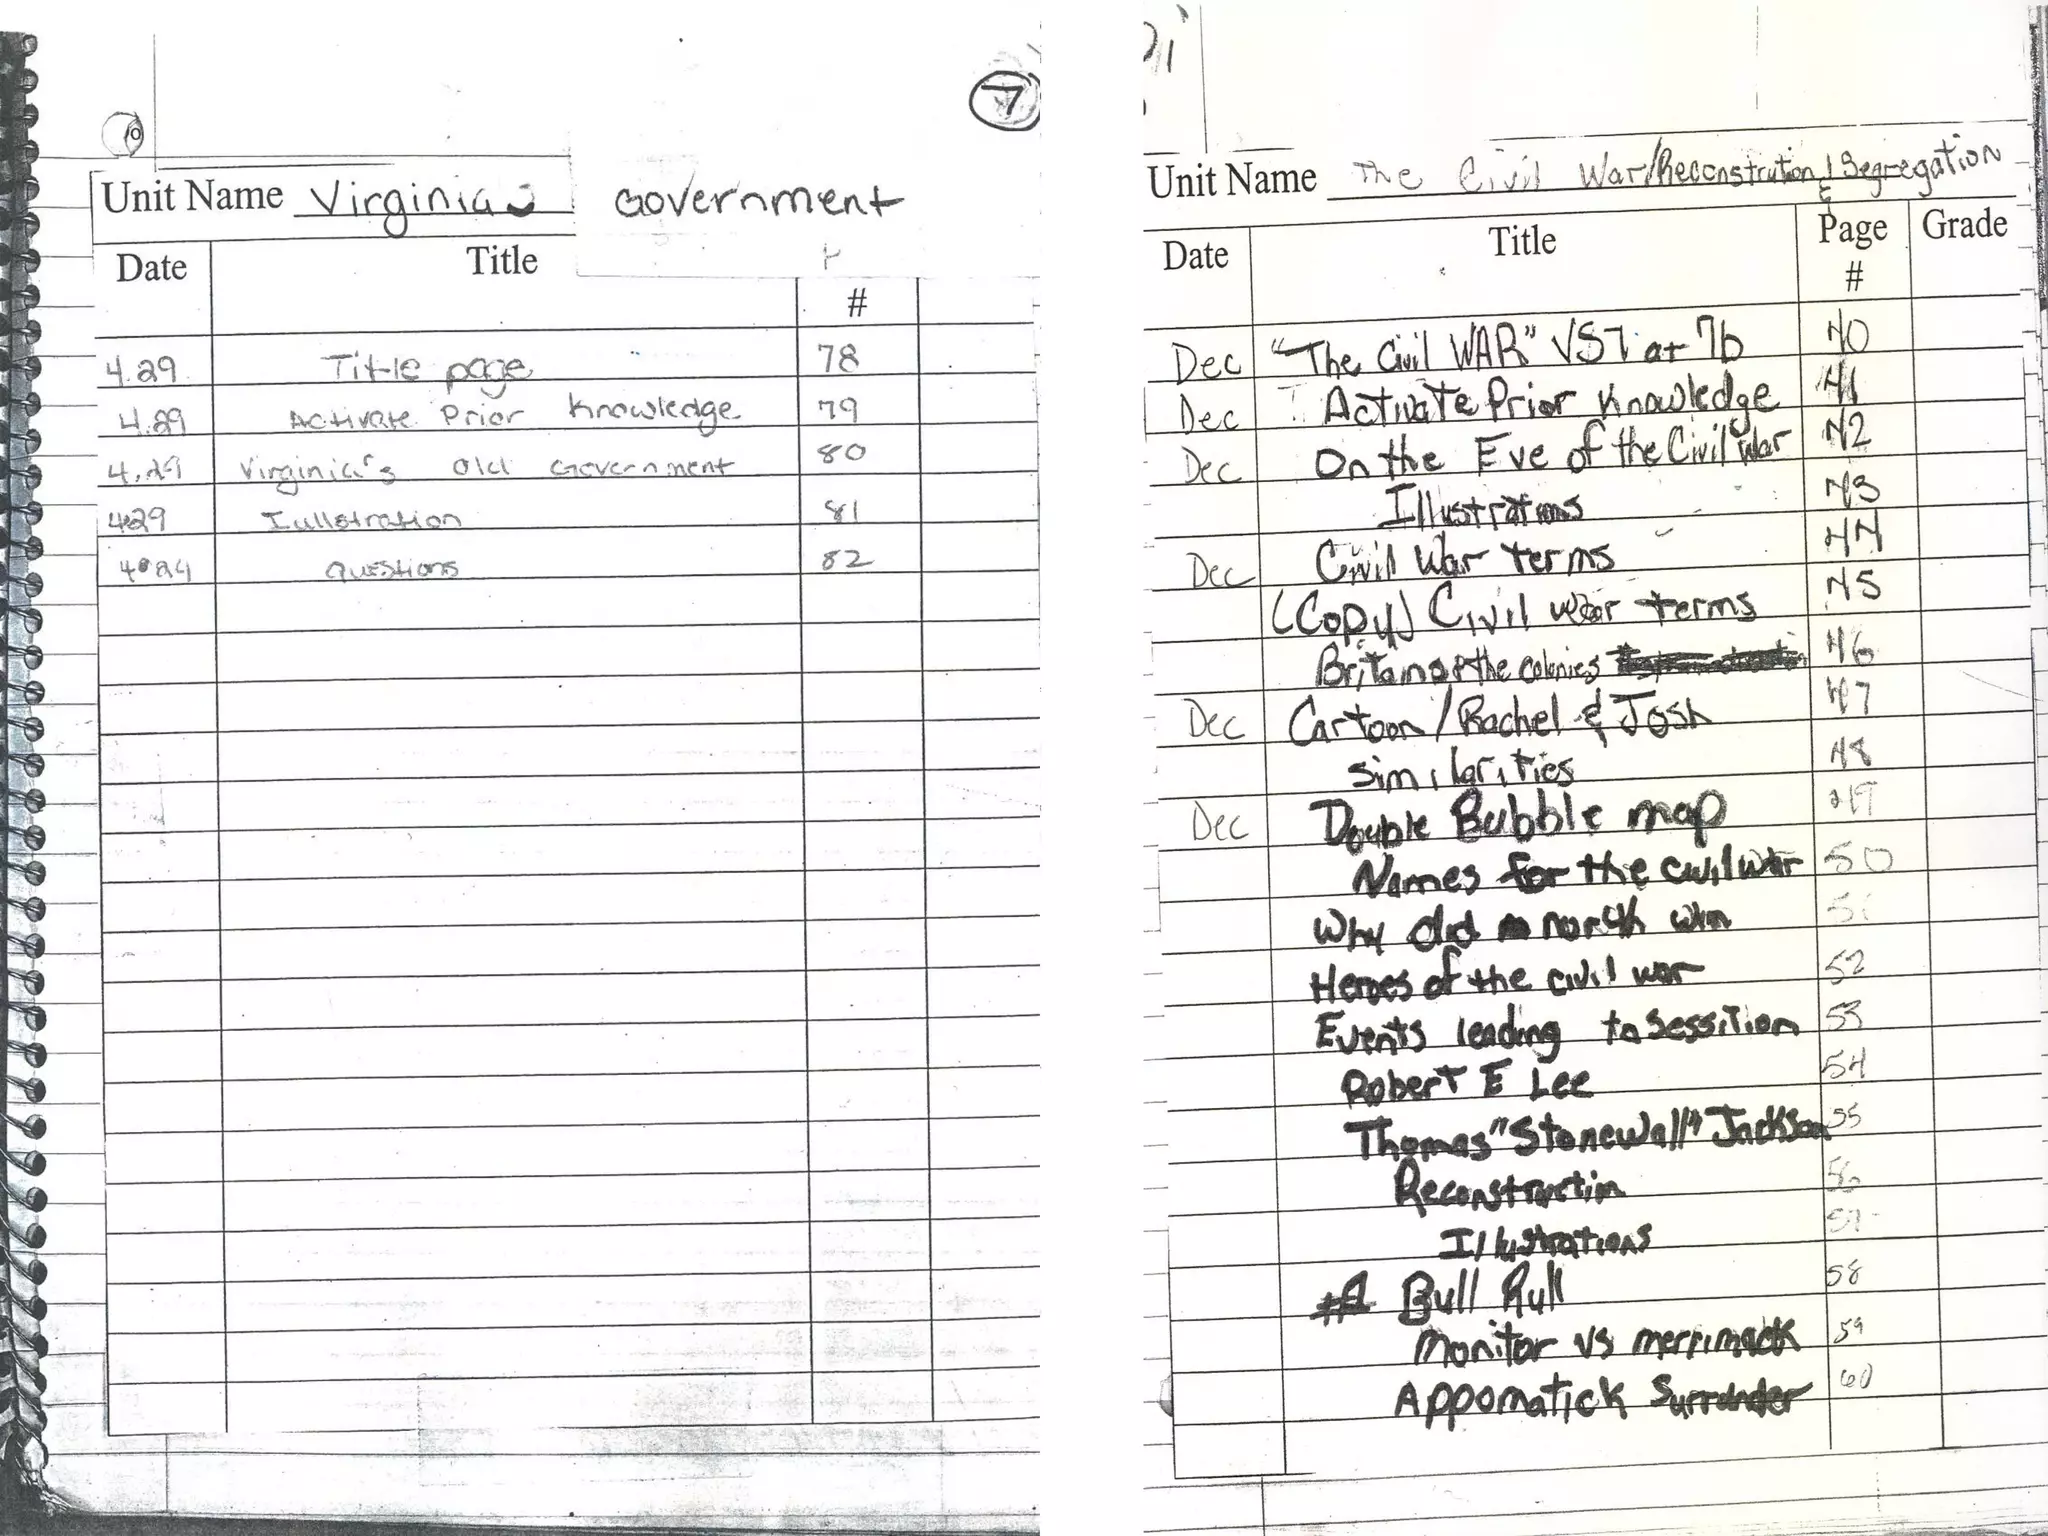 7
10
Unit Name Virginia's Government
Date Title
#
4.29 Title page 78
4.29 Activate Prior Knowledge 79
4.29 Virginia's Old Government 80
4.29 Iullstration 81
4.29 questions 82
Unit Name The Civil War/Reconstrution & Segregation
Date Title Page Grade
#
Dec "The Civil WAR" VS7 a+ 7b 40
Dec Activate Prior Knowledge 41
Dec On the Eve of the Civil War 42
Illustrations 43
Dec Civil War terms 44
(Copy) Civil war terms 45
the colonies 46
Dec Cartoon/Rachel & Josh 47
similarities 48
Dec Double Bubble map 49
Names for the civil war 50
Why did north win 51
Heroes of the civil war 52
Events leading to Sessition 53
Robert E Lee 54
Thomas "Stonewall" Jackson 55
Reconstruction 56
Illustrations 57
Bull Rull 58
Monitor vs merrimack 59
Appomatick Surrander 60